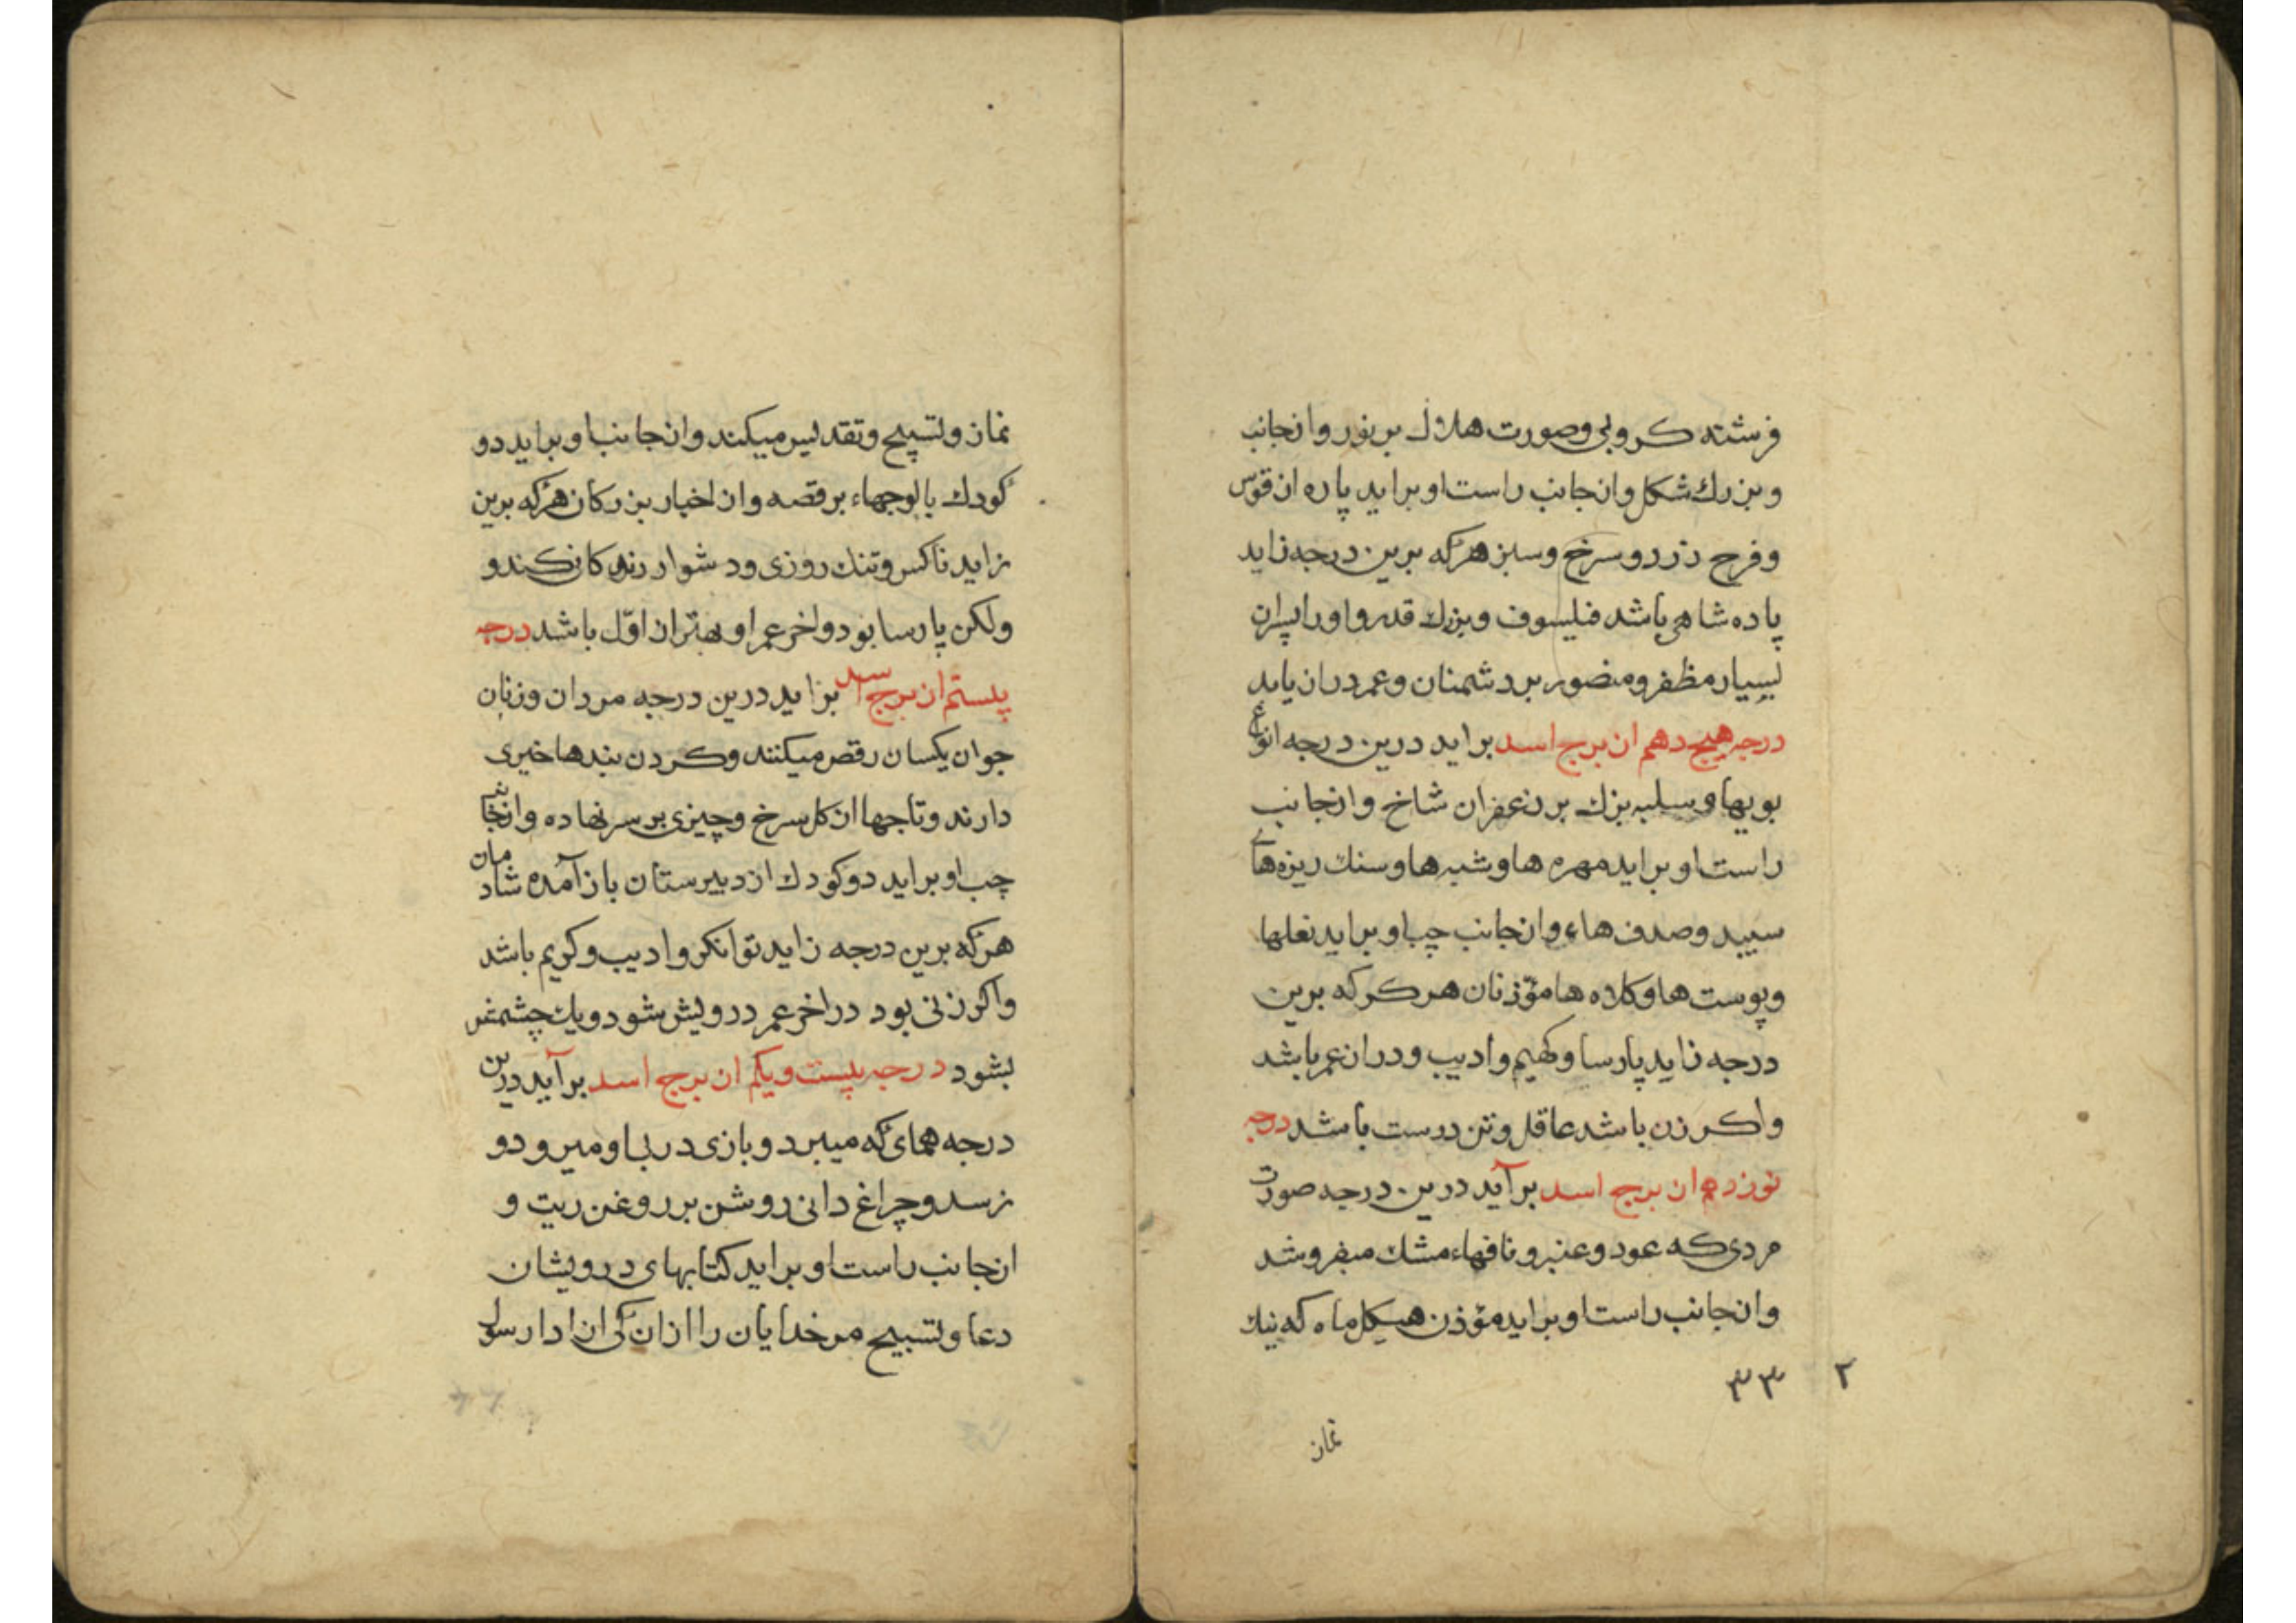 فرشته كروبى وصورت هلال بر نور وانجانب
وبزرك شكل وانجانب راست او برايد پاره ان قوس
وفرح زرد و سرخ وسبز هركه برين درجه زايد
پاده شاهى باشد فليسوف وبزرك قدر واورا پسران
بسيار مظفر ومنصور بر دشمنان وعمر دران يابد
درجه هيجدهم ان برج اسد برايد درين درجه انواع
بويها و سلبه بزرك بر زعفران شاخ وانجانب
راست او برايد مهره ها وشبه ها وسنك ريزه هاے
سيبد وصدف هاء وانجانب چب او برايد نعلها
وپوست ها وكلاه ها مؤذنان هر كر كه برين
درجه زايد پارسا وكهيم واديب ودران عمر باشد
واكر زن باشد عاقل وتن درست باشد درجه
نوزدهم ان برج اسد برآيد درين درجه صورت
مردى كه عود وعنبر و نافهاء مشك ميفروشد
وانجانب راست او برايد مؤذن هيكل ماه كه نيك
٣٣ ٢
نمان
نمان وتسبيح وتقديس ميكند وانجانب او برايد دو
كودك با لوجهاء بر قصه وان اخبار بزركان هركه برين
زايد ناكس وتنك روزى ودشوار زندكانى كند و
ولكن پارسا بود واخر عمر او بهتر ان اوّل باشد درجه
پيستم ان برج اسد بزايد درين درجه مردان وزنان
جوان يكسان رقص ميكنند وكردن بندها خيرى
دارند وتاجها ان كل سرخ وچيزى بر سر نهاده وانجانب
چب او برايد دو كودك از دبيرستان باز آمده شادمان
هركه برين درجه زايد توانكر واديب وكريم باشد
واكر زنى بود در اخر عمر درويش شود ويك چشمش
بشود درجه پيست ويكم ان برج اسد برآيد درين
درجه هماى كه ميبرد وبازى در بى او ميرود و
نرسد وچراغ دانى روشن بر روغن ريت و
انجانب راست او برايد كتابهاى درويشان
دعا وتسبيح مر خدايان را ازان كى ان ادا رسول